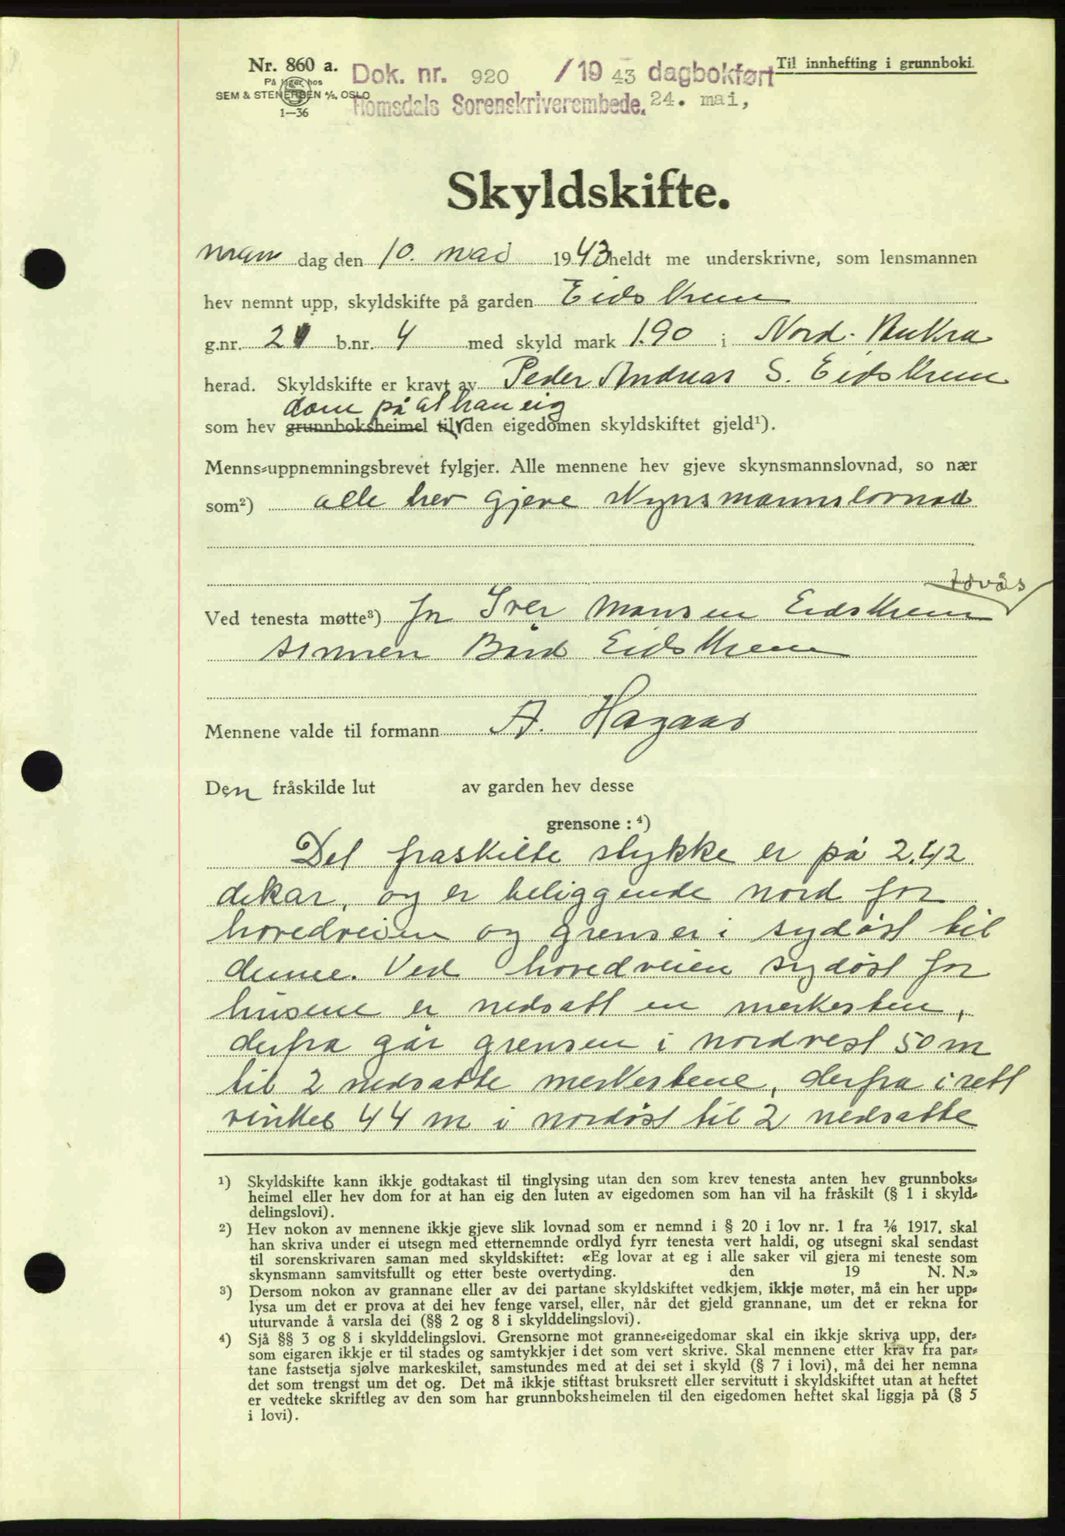 Nr. 860 a.
På lager hos
SEM & STENERSEN A/S, OSLO
1—36
Dok. nr. 920 /19 43 dagbokført
Romsdals Sorenskriverembede. 24. mai,
Til innhefting i grunnboki.
Skyldskifte.
dag den 10. mai 1943 heldt me underskrivne, som lensmannen
hev nemnt upp, skyldskifte på garden Eidskrem
g.nr. 21 b.nr. 4 med skyld mark 1.90 i Nord-Aukra
herad. Skyldskifte er kravt av Peder Andreas S. Eidskrem
dom på at han eig
som hev grunnboksheimel til den eigedomen skyldskiftet gjeld¹).
Menns-uppnemningsbrevet fylgjer. Alle mennene hev gjeve skynsmannslovnad, so nær
som²) alle hev gjeve skynsmannslovnad
Ved tenesta møtte³) for Iver Monsen Eidskrem
sønnen Bård Eidskrem
Mennene valde til formann A. Hagaas
Den fråskilde lut av garden hev desse
grensone : ⁴)
Det fraskilte stykke er på 2.42
dekar, og er beliggende nord for
hovedveien og grenser i sydøst til
denne. Ved hovedveien sydøst for
husene er nedsatt en merkesten,
derfra går grensen i nordvest 50 m
til 2 nedsatte merkestene, derfra i rett
vinkel 44 m i nordøst til 2 nedsatte
¹) Skyldskifte kann ikkje godtakast til tinglysing utan den som krev tenesta anten hev grunnboks-
heimel eller hev dom for at han eig den luten av eigedomen som han vil ha fråskilt (§ 1 i skyld-
delingslovi).
²) Hev nokon av mennene ikkje gjeve slik lovnad som er nemnd i § 20 i lov nr. 1 fra 1/6 1917, skal
han skriva under ei utsegn med etternemnde ordlyd fyrr tenesta vert haldi, og utsegni skal sendast
til sorenskrivaren saman med skyldskiftet: «Eg lovar at eg i alle saker vil gjera mi teneste som
skynsmann samvitsfullt og etter beste overtyding. den 19 N. N.»
³) Dersom nokon av grannane eller av dei partane skyldskiftet vedkjem, ikkje møter, må ein her upp-
lysa um det er prova at dei hev fenge varsel, eller, når det gjeld grannane, um det er rekna for
uturvande å varsla dei (§§ 2 og 8 i skylddelingslovi).
⁴) Sjå §§ 3 og 8 i skylddelingslovi. Grensorne mot granne-eigedomar skal ein ikkje skriva upp, der-
som eigaren ikkje er til stades og samtykkjer i det som vert skrive. Skal mennene etter krav fra par-
tane fastsetja sjølve markeskilet, samstundes med at dei set i skyld (§ 7 i lovi), må dei her nemna
det som trengst um det og. Det må ikkje stiftast bruksrett eller servitutt i skyldskiftet utan at heftet
er vedteke skriftleg av den som har grunnboksheimelen til den eigedomen heftet skal liggja på (§ 5
i lovi).